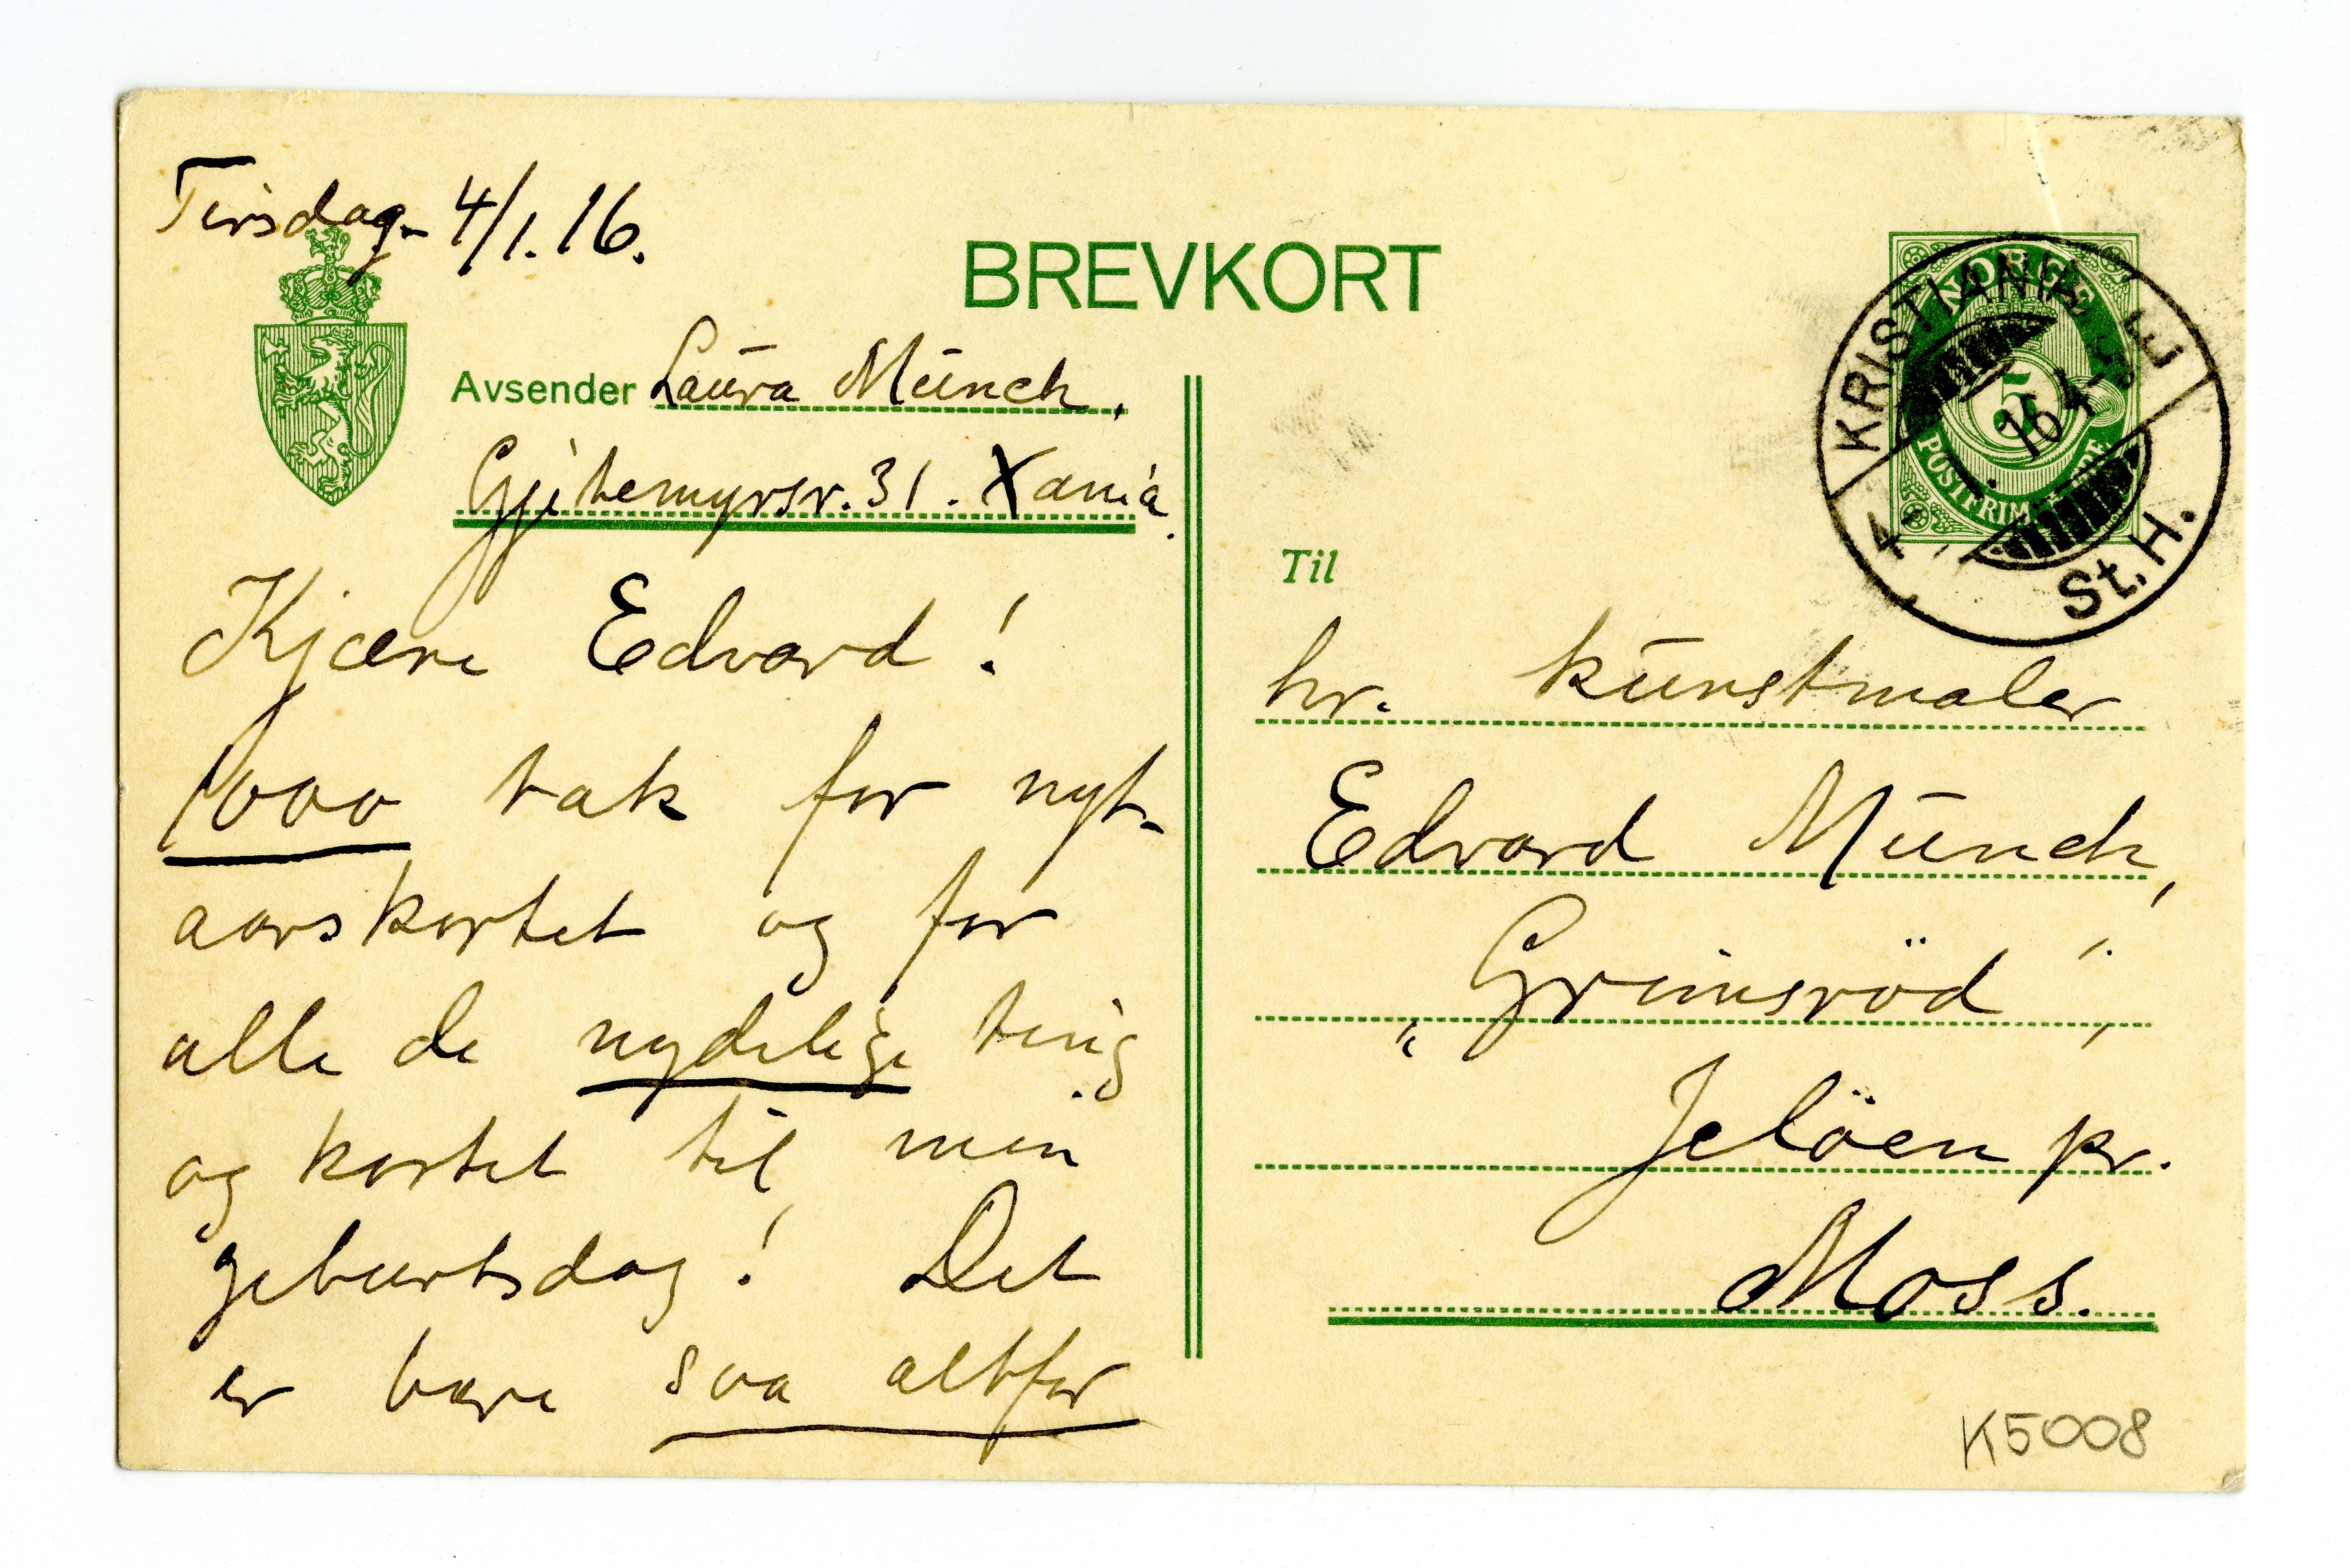 Tirsdag- 4/1. 16.
BREVKORT
Avsender Laura Munch.
Gjetemyrsv. 31. Xania.
Kjære Edvard!
1000 tak for nyt-
aarskortet og for
alle de nydelige ting
og kortet til min
geburtsdag! Det
er bare saa altfor
NORGE
5
POSTFRIM
KRISTIANIA
4 1. 16 4-5 E
St. H.
Til
hr. kunstmaler
Edvard Munch,
„Grimsröd",
Jelöen pr.
Moss.
K5008